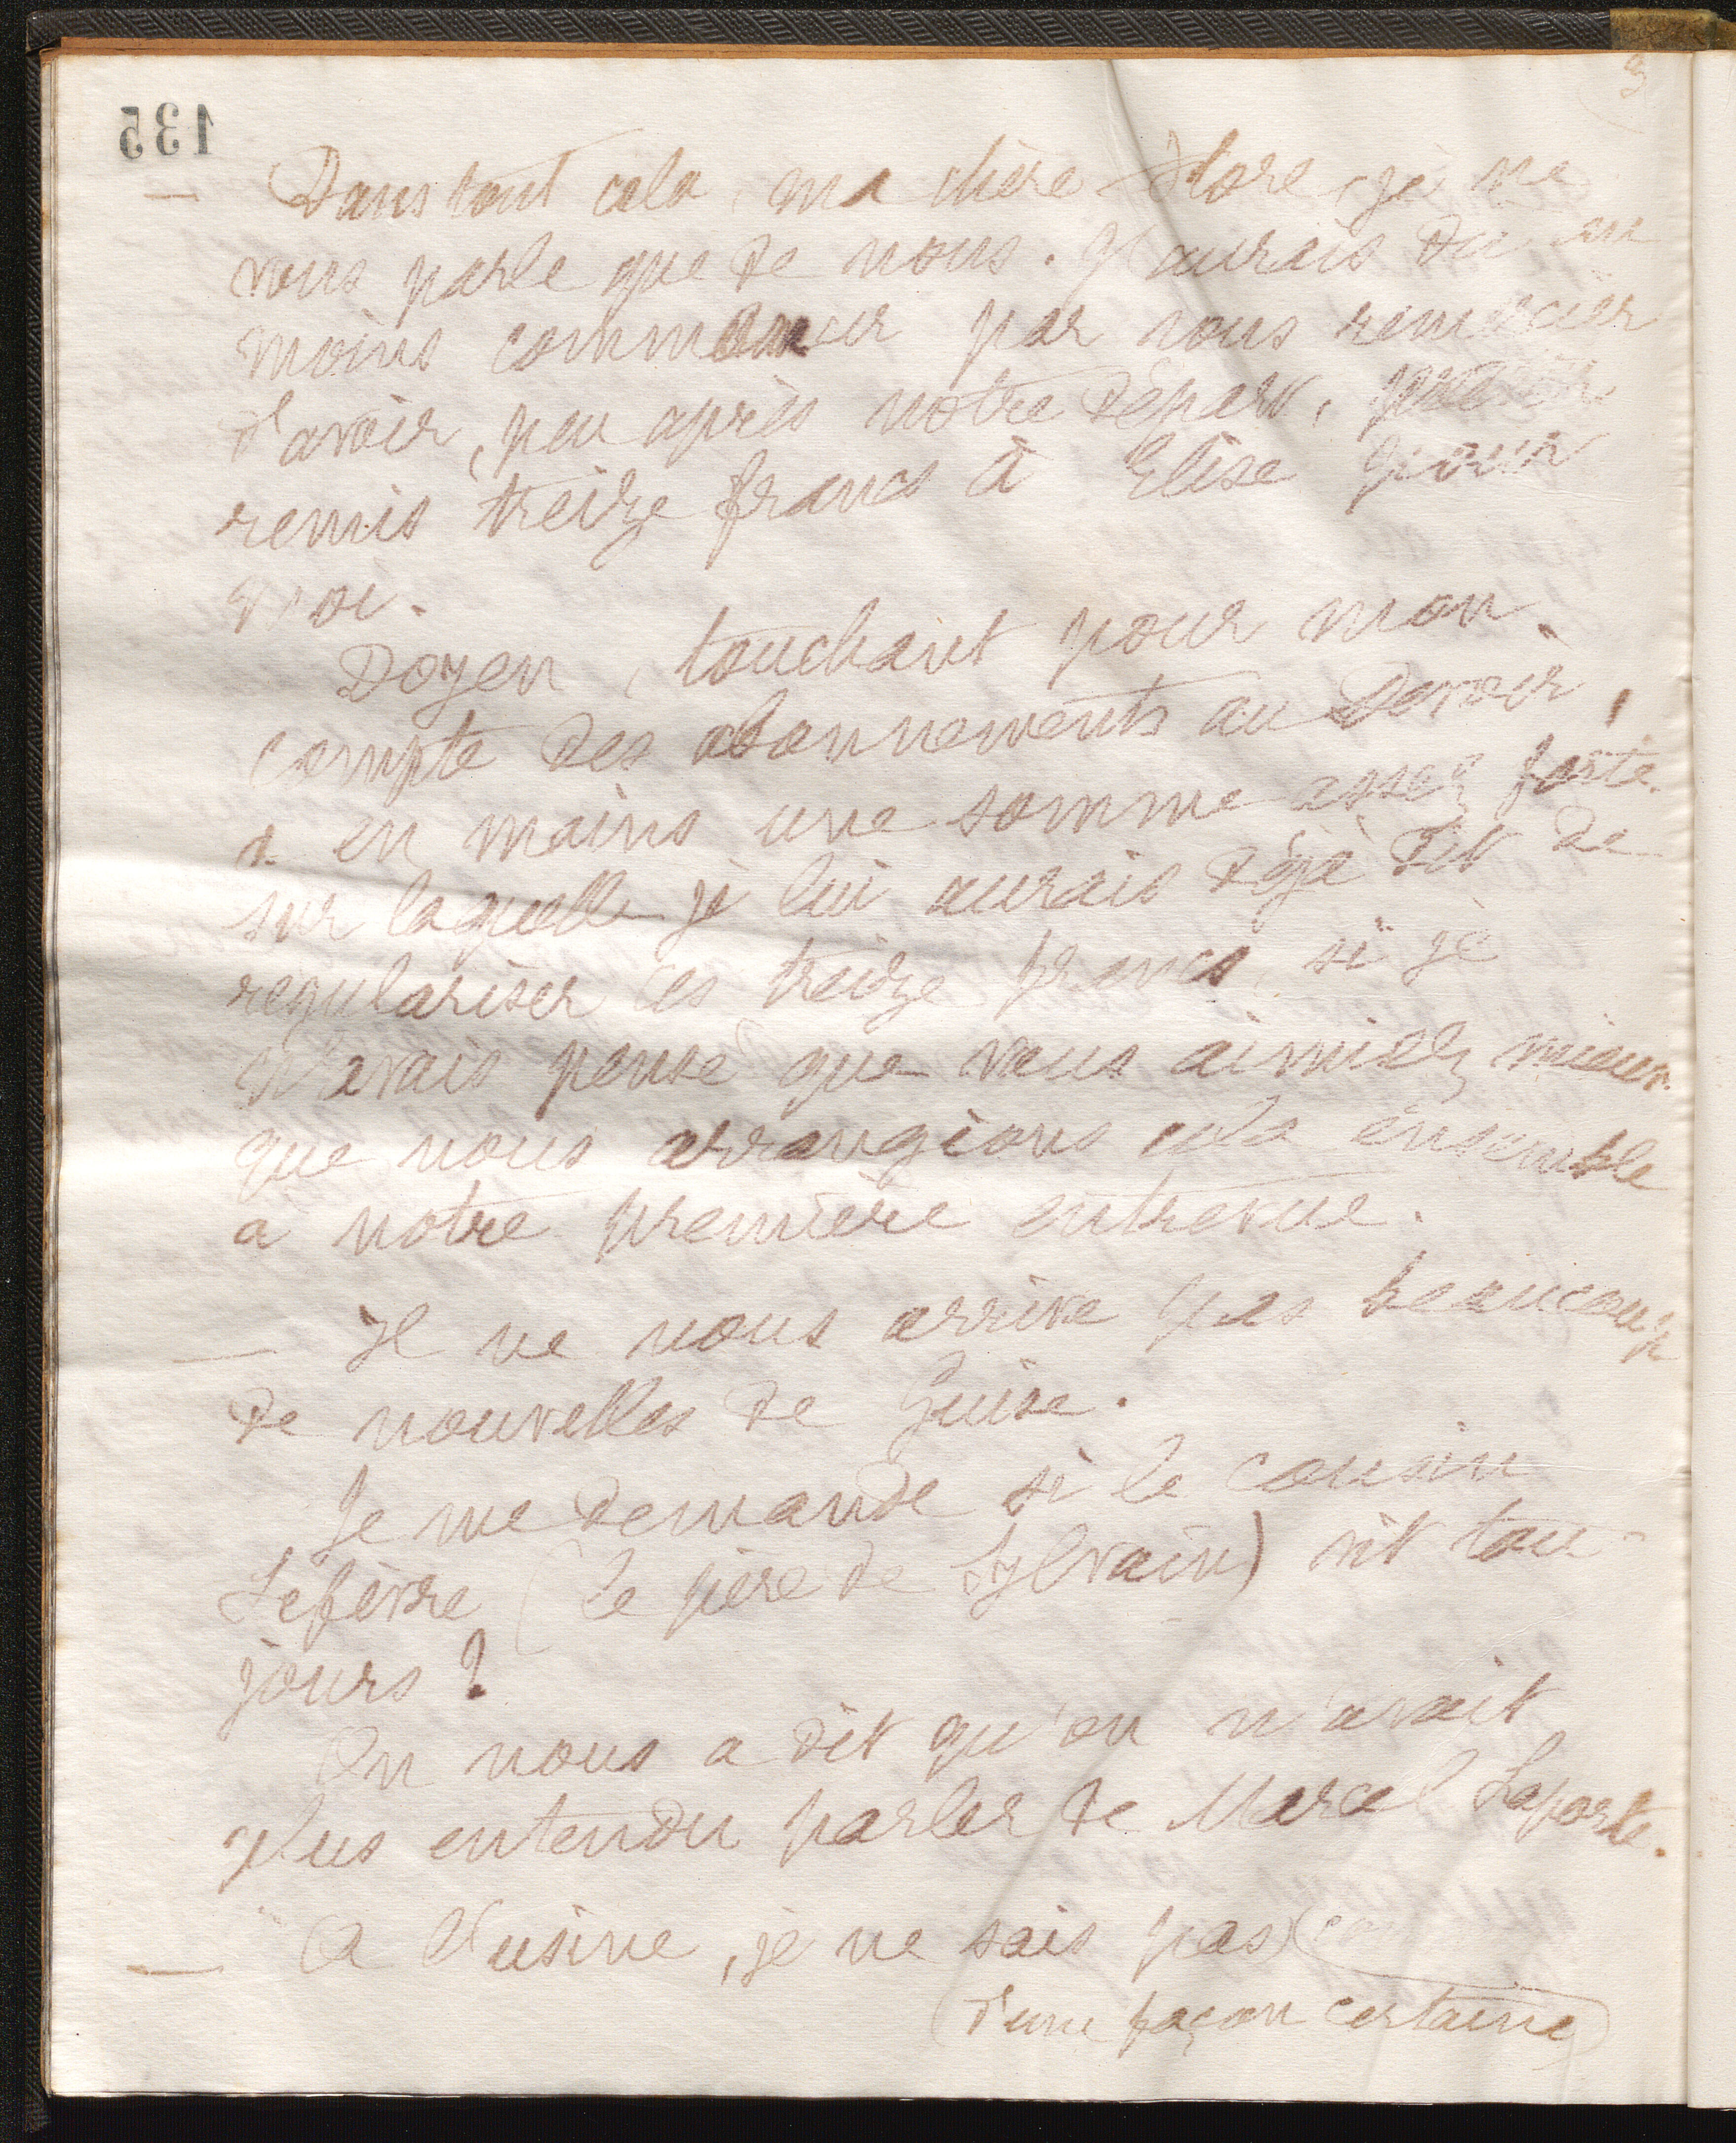 135
— Dans tout cela, ma chère Flore, je ne
vous parle que de nous. J'aurais dû au
moins commencer par vous remercier
d'avoir, peu après notre départ,
remis treize francs à Elise pour
moi.
Doyen, touchant pour mon
compte des abonnements au Devoir,
a en mains une somme assez forte
sur laquelle je lui aurais déjà dit de
regulariser ces treize francs, si je
n'avais pensé que vous aimiez mieux
que nous arrangions cela ensemble
a notre première entrevue.
— Il ne nous arrive pas beaucoup
de nouvelles de Guise.
Je me demande si le cousin
Lefèvre (le père de Sylvain) vit tou-
jours ?
On nous a dit qu'on n'avait
plus entendu parler de Marcel Laporte.
— A l'usine, je ne sais pas
(d'une façon certaine)